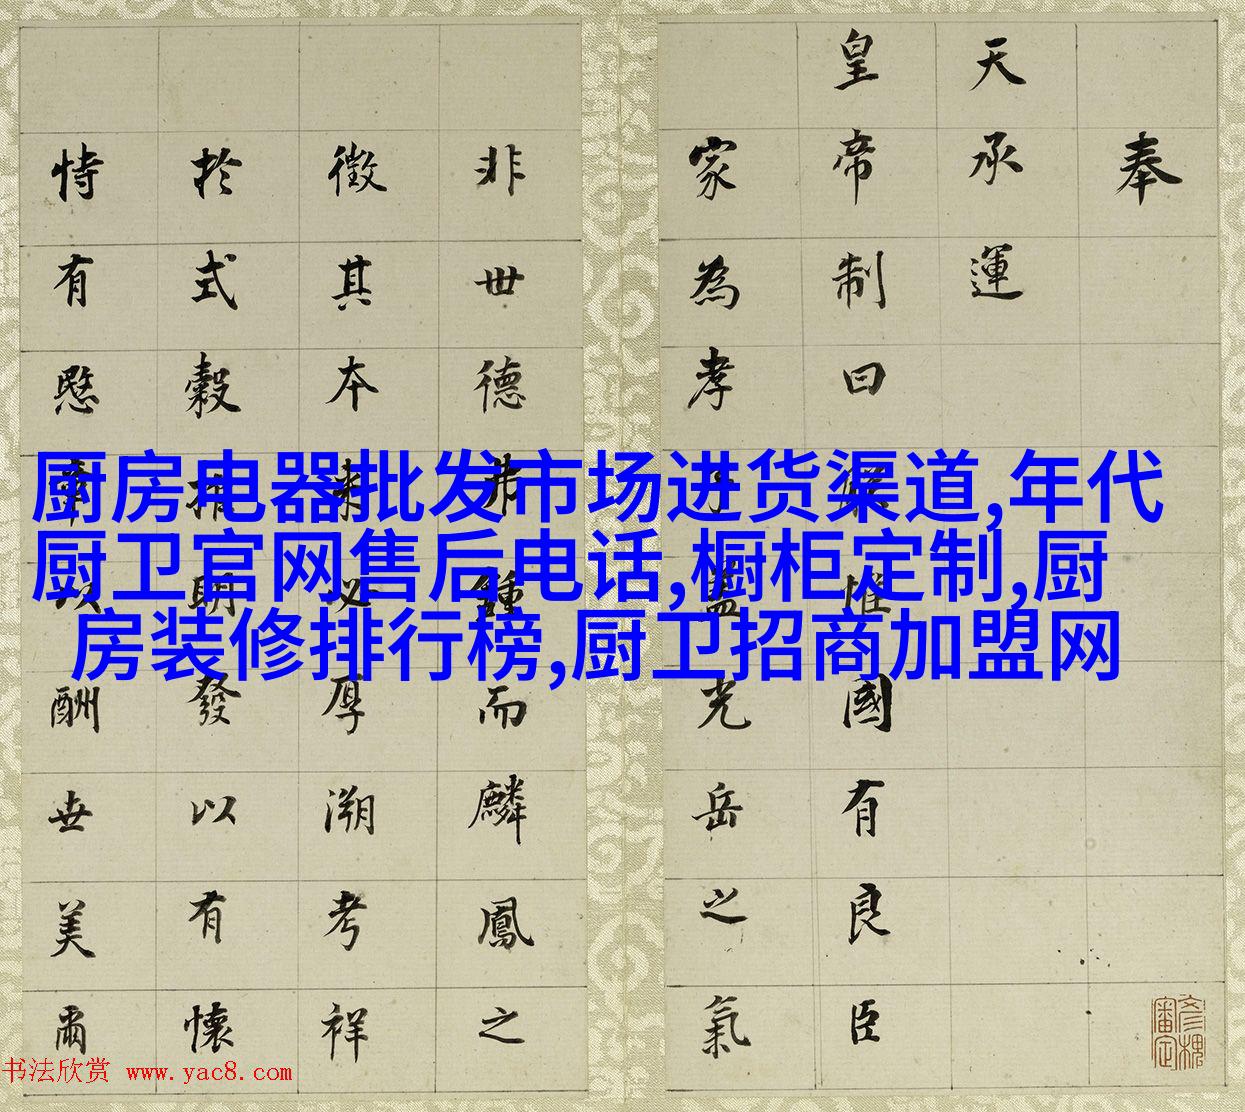 奉
天承運
皇帝制曰朕惟國有良臣
家為孝子蓋光岳之氣
非世德弗鍾而麟鳳之
徵其本来必厚溯考祥
於式穀用明發以有懷
特有愍章以酬世美爾
厨房电器批发市场进货渠道,年代
厨卫官网售后电话,橱柜定制,厨
房装修排行榜,厨卫招商加盟网
书法欣赏 www.yac8.com